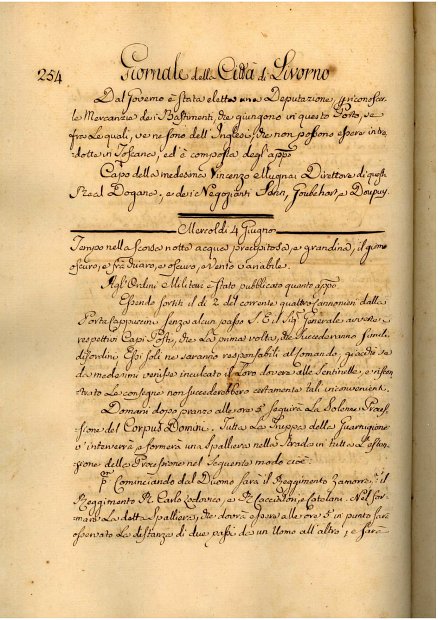 254
Giornale della Città di Livorno
Dal Governo è stata eletta una Deputazione, p riconoscer
le Mercanzie dei Bastimenti, che giungono in questo Porto, se
fra le quali, ve ne sono dell' Inglesi, che non possono essere intro
dotte in Toscana, ed è composta degl' app.
Capo della medesima Vincenzo Mugnai Direttore di questa
Real Dogana, e dei Negozianti Senn, e Doupuy.
Mercoldì 4 Giugno
Tempo nella scorsa notte acqua precipitosa, e grandine, il giorno
oscuro, e fra chiaro, e oscuro, e vento variabile.
Agl' Ordini Militari è stato pubblicato quanto app.
Essendo sortiti il dì 2 del corrente quattro Cannonieri dalla
Porta Cappuccini senza alcun passo S. E. il Sig. Generale avverte
i respettivi Capi Posti, che la prima volta, che succederanno simili
disordini Essi soli ne saranno responsabili al Comando, giacchè se
da medesimi venisse inculcato il loro dovere alle Sentinelle, e
le consegne non succederebbero certamente tali inconvenienti.
Domani dopo pranzo alle ore 5 seguirà la Solenne Proces
sione del Corpus Domini. Tutta la Truppa della Guarnigione
v' interverrà, e formerà una Spalliera nella Strada in tutta l'esten
zione della Processione nel seguente modo cioè:
P.º Cominciando dal Duomo sarà il Reggimento Zamora, il
Reggimento R. Carlo Lodovico, e R. Cacciatori Catelani. Nel for
mare la dett.ª Spalliera, che dovrà essere alle ore 5 in punto sarà
osservata la distanza di due passi da un Uomo all' altro, e sarà